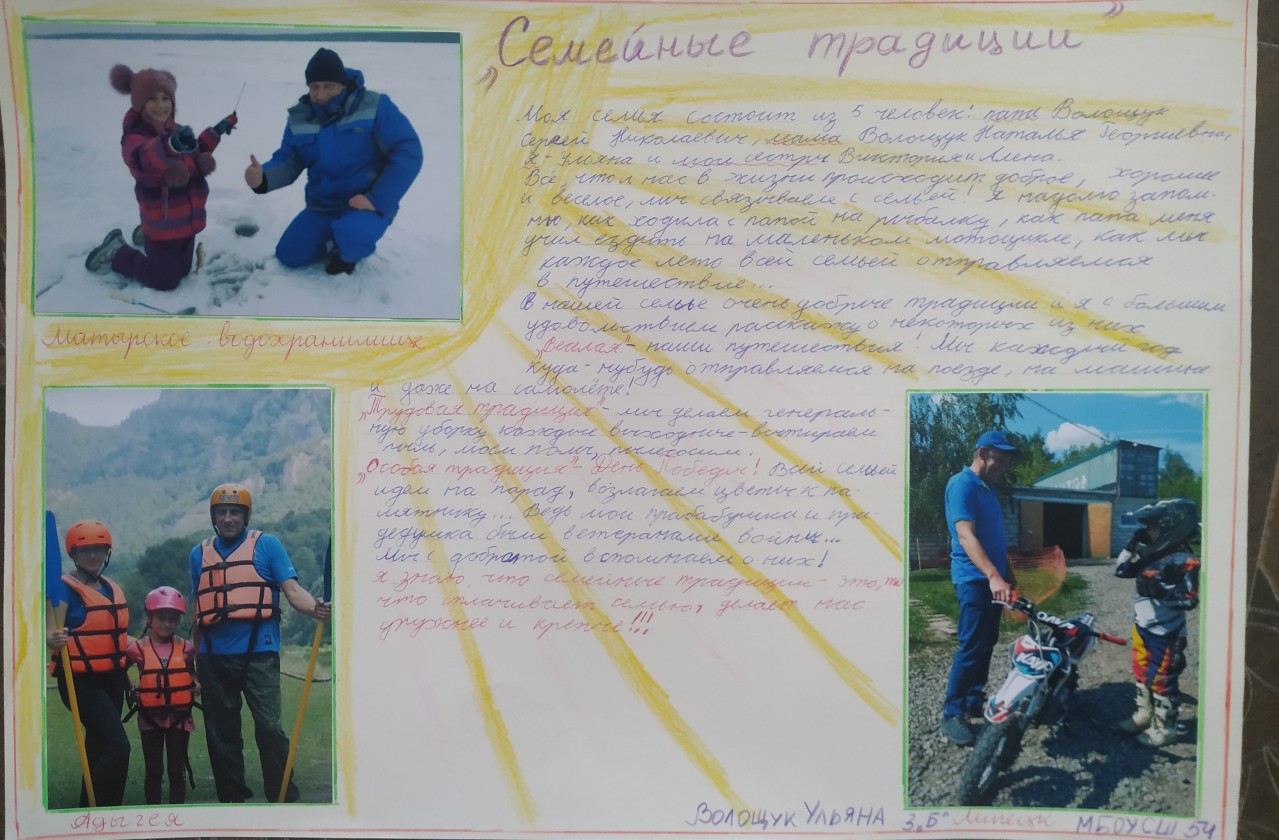 „Семейные традиции"
Моя семья состоит из 5 человек: папа Волощук
Сергей Николаевич, мама Волощук Наталья Георгиевна,
я - Ульяна и мои сестры Виктория и Алена.
Всё, что у нас в жизни происходит доброе, хорошее
и веселое, мы связываем с семьёй! Я надолго запом-
ню, как ходила с папой на рыбалку, как папа меня
учил ездить на маленьком мотоцикле, как мы
каждое лето всей семьей отправляемся
в путешествие...
В нашей семье очень добрые традиции и я с большим
удовольствием расскажу о некоторых из них
„Веселая" - наши путешествия! Мы каждый год
куда-нубудь отправляемся на поезде, на машине
и даже на самолёте!
„Трудовая традиция" - мы делаем генераль-
ную уборку каждые выходные - вытираем
пыль, моем полы, пылесосим.
„Особая традиция" - День Победы! Всей семьей
идем на парад, возлагаем цветы к па-
мятнику... Ведь мои прабабушка и пра-
дедушка были ветеранами войны...
Мы с добротой вспоминаем о них!
Я знаю, что семейные традиции - это, то
что сплачивает семью, делает нас
дружнее и крепче!!!
Матырское водохранилище
Адыгея
KAYO
Волощук Ульяна 3„Б" Липецк МБОУСШ 54